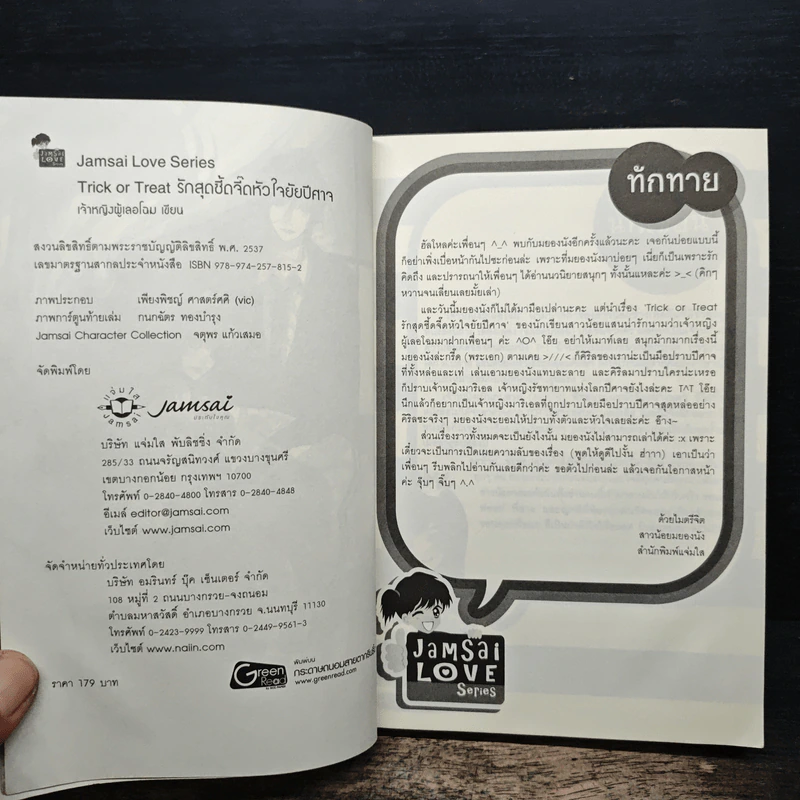 JAMSAI
LOVE
Jamsai Love Series
Trick or Treat รักสุดซี้ดจี๊ดหัวใจยัยปีศาจ
เจ้าหญิงผู้เลอโฉม เขียน
สงวนลิขสิทธิ์ตามพระราชบัญญัติลิขสิทธิ์ พ.ศ. 2537
เลขมาตรฐานสากลประจำหนังสือ ISBN 978-974-257-815-2
ภาพประกอบ เพียงพิชญ์ ศาสตร์ศศิ (vic)
ภาพการ์ตูนท้ายเล่ม กนกฉัตร ทองบำรุง
Jamsai Character Collection จตุพร แก้วเสมอ
จัดพิมพ์โดย
แจ่มใส
Jamsai
Jamsai
บริษัท แจ่มใส พับลิชชิ่ง จำกัด
285/33 ถนนจรัญสนิทวงศ์ แขวงบางขุนศรี
เขตบางกอกน้อย กรุงเทพฯ 10700
โทรศัพท์ 0-2840-4800 โทรสาร 0-2840-4848
อีเมล์ editor@jamsai.com
เว็บไซต์ www.jamsai.com
จัดจำหน่ายทั่วประเทศโดย
บริษัท อมรินทร์ บุ๊ค เซ็นเตอร์ จำกัด
108 หมู่ที่ 2 ถนนบางกรวย-จงถนอม
ตำบลมหาสวัสดิ์ อำเภอบางกรวย จ.นนทบุรี 11130
โทรศัพท์ 0-2423-9999 โทรสาร 0-2449-9561-3
เว็บไซต์ www.naiin.com
ราคา 179 บาท
Green
Read
พิมพ์บน
กระดาษถนอมสายตากรีนรี้ด
www.greenread.com
ทักทาย
ฮัลโหลค่ะเพื่อนๆ ^_^ พบกับมยองนังอีกครั้งแล้วนะคะ เจอกันบ่อยแบบนี้
ก็อย่าเพิ่งเบื่อหน้ากันไปซะก่อนล่ะ เพราะที่มยองนังมาบ่อยๆ เนี่ยก็เป็นเพราะรัก
คิดถึง และปรารถนาให้เพื่อนๆ ได้อ่านนวนิยายสนุกๆ ทั้งนั้นแหละค่ะ >_< (คิกๆ
หวานจนเลี่ยนเลยมั้ยเล่า)
และวันนี้มยองนังก็ไม่ได้มามือเปล่านะคะ แต่นำเรื่อง 'Trick or Treat
รักสุดซี้ดจี๊ดหัวใจยัยปีศาจ' ของนักเขียนสาวน้อยแสนน่ารักนามว่าเจ้าหญิง
ผู้เลอโฉมมาฝากเพื่อนๆ ค่ะ ^O^ โอ๊ย อย่าให้เมาท์เลย สนุกม้ากมากเรื่องนี้
มยองนังล่ะกรี๊ด (พระเอก) ตามเคย >///< ก็คิริลของเราน่ะเป็นมือปราบปีศาจ
ที่ทั้งหล่อและเท่ เล่นเอามยองนังแทบละลาย และคิริลมาปราบใครน่ะเหรอ
ก็ปราบเจ้าหญิงมาริเอล เจ้าหญิงรัชทายาทแห่งโลกปีศาจยังไงล่ะคะ T^T โอ๊ย
นึกแล้วก็อยากเป็นเจ้าหญิงมาริเอลที่ถูกปราบโดยมือปราบปีศาจสุดหล่ออย่าง
คิริลซะจริงๆ มยองนังจะยอมให้ปราบทั้งตัวและหัวใจเลยล่ะค่ะ อ๊าง~
ส่วนเรื่องราวทั้งหมดจะเป็นยังไงนั้น มยองนังไม่สามารถเล่าได้ค่ะ :x เพราะ
เดี๋ยวจะเป็นการเปิดเผยความลับของเรื่อง (พูดให้ดูดีไปงั้น ฮ่าาา) เอาเป็นว่า
เพื่อนๆ รีบพลิกไปอ่านกันเลยดีกว่าค่ะ ขอตัวไปก่อนล่ะ แล้วเจอกันโอกาสหน้า
ค่ะ จุ๊บๆ จิ๊บๆ ^.^
ด้วยไมตรีจิต
สาวน้อยมยองนัง
สำนักพิมพ์แจ่มใส
JAMSAI
LOVE
Series